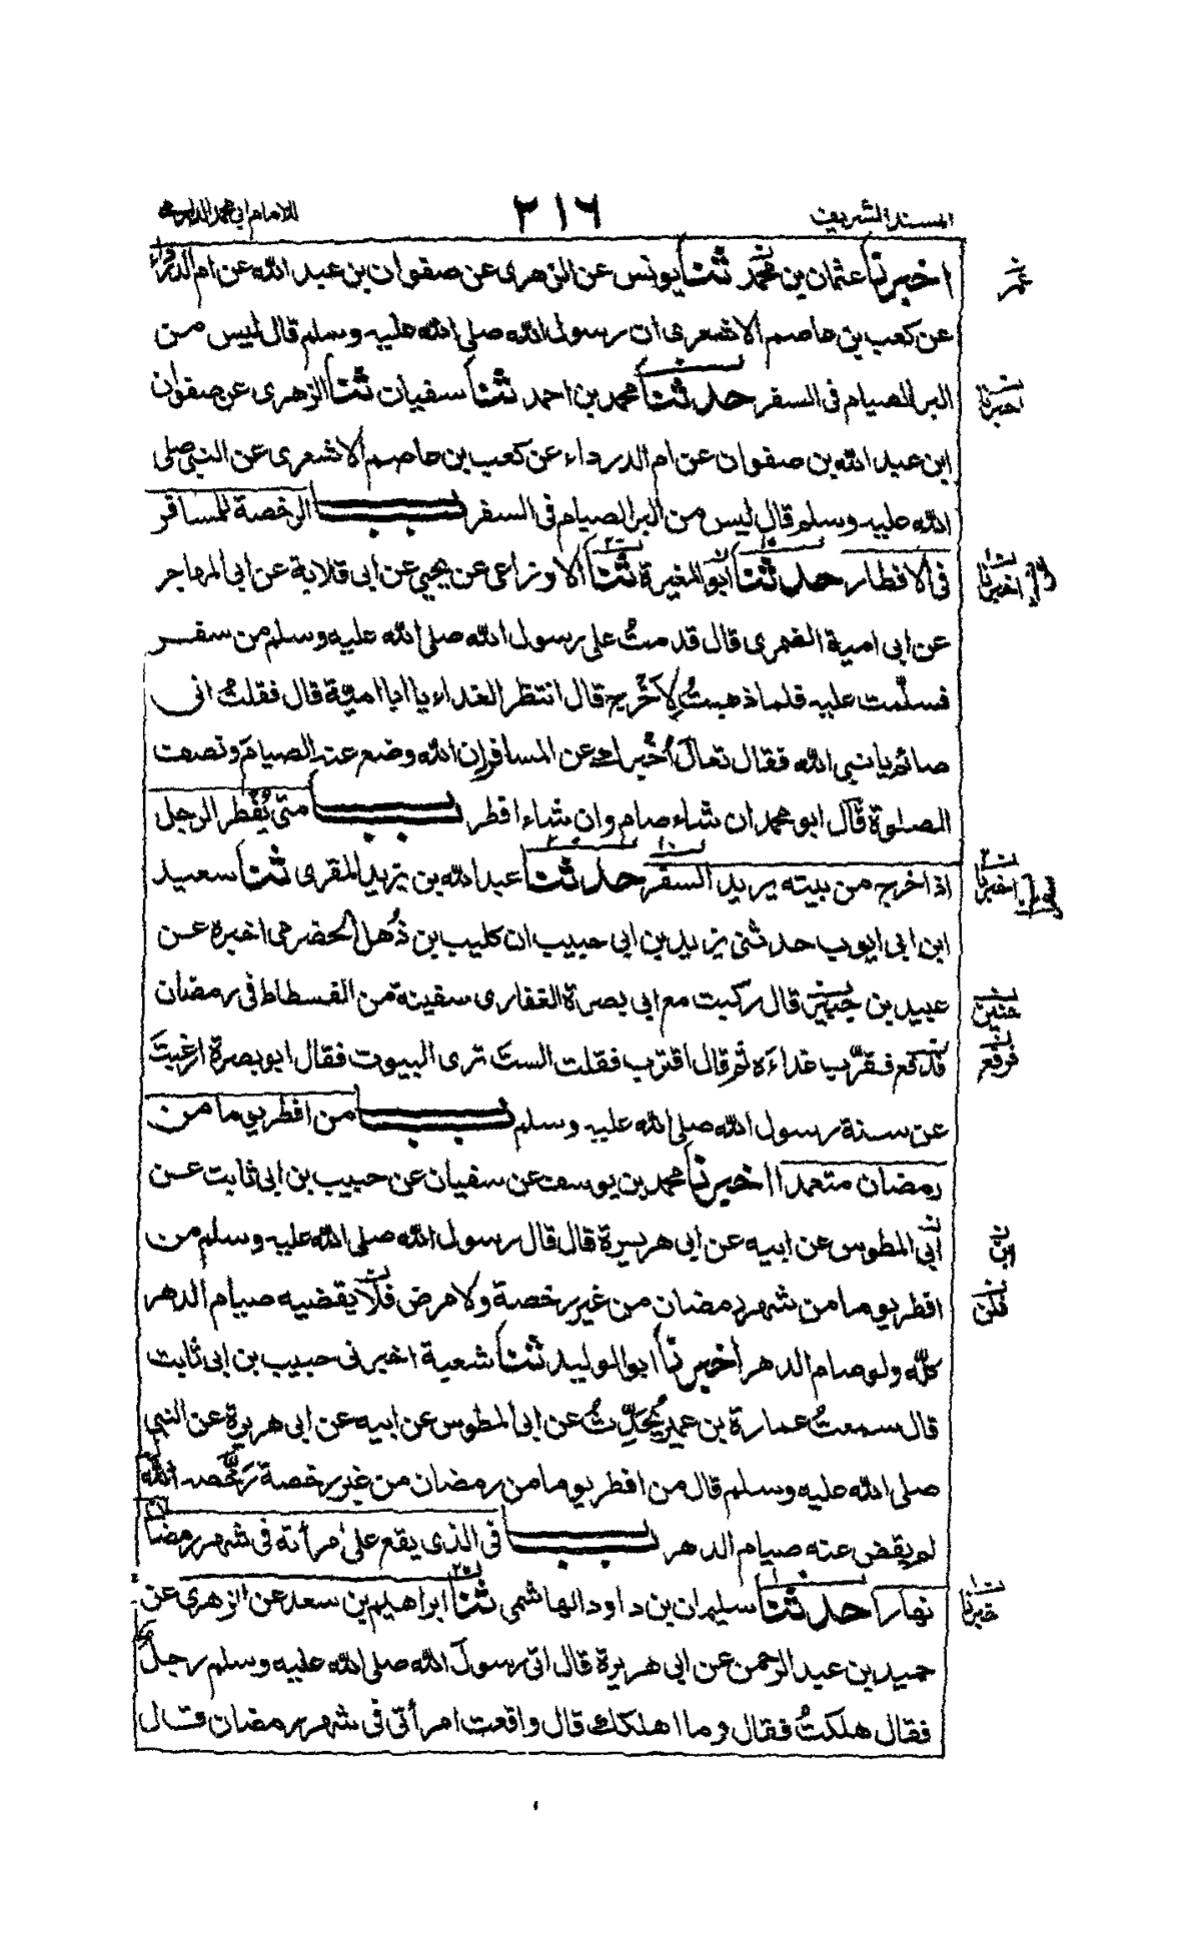 المسند الشريف
٢١٦
للامام ابي محمد الدارمي
اخبرنا عثمان بن محمد ثنا يونس عن الزهرى عن صفوان بن عبد الله عن ام الدرداء
عمر
عن كعب بن عاصم الاشعرى ان رسول الله صلى الله عليه وسلم قال ليس من
البر الصيام فى السفر حدثنا محمد بن احمد ثنا سفيان ثنا الزهرى عن صفوان
اخبرنا
ابن عبد الله بن صفوان عن ام الدرداء عن كعب بن عاصم الاشعرى عن النبى صلى
الله عليه وسلم قال ليس من البر الصيام فى السفر باب الرخصة للمسافر
فى الافطار حدثنا ابو المغيرة ثنا الاوزاعى عن يحيى عن ابى قلابة عن ابى المهاجر
اخبرنا
عن ابى امية الضمرى قال قدمتُ على رسول الله صلى الله عليه وسلم من سفر
فسلّمت عليه فلما ذهبتُ لِاَخْرج قال انتظر الغداء يا ابا اميّة قال فقلتُ انى
صائم يا نبى الله فقال تعالَ اُخْبرك عن المسافر ان الله وضع عنه الصيامَ ونصف
الصلوة قال ابو محمد ان شاء صام وان شاء افطر باب متى يُفْطر الرجل
اذا خرج من بيته يريد السفر حدثنا عبد الله بن يزيد المقرى ثنا سعيد
اخبرنا
ابن ابى ايوب حدثنى يزيد بن ابى حبيب ان كليب بن ذُهل الحضرمى اخبره عن
عبيد بن جبير قال ركبت مع ابى بصرة الغفارى سفينة من الفسطاط فى رمضان
حنين
فدفع فقرّب غداءَه ثم قال اقترب فقلت الستَ ترى البيوت فقال ابو بصرة ارغبتَ
فرفع
عن سنة رسول الله صلى الله عليه وسلم باب من افطر يوما من
رمضان متعمدا اخبرنا محمد بن يوسف عن سفيان عن حبيب بن ابى ثابت عن
ابى المطوس عن ابيه عن ابى هريرة قال قال رسول الله صلى الله عليه وسلم من
ابن
افطر يوما من شهر رمضان من غير رخصة ولا مرض فلا يقضيه صيام الدهر
فلن
كلّه ولو صام الدهر اخبرنا ابو الوليد ثنا شعبة اخبرنى حبيب بن ابى ثابت
قال سمعتُ عمارة بن عمير يُحَدِّثُ عن ابى المطوس عن ابيه عن ابى هريرة عن النبى
صلى الله عليه وسلم قال من افطر يوما من رمضان من غير رخصة رَخَّصه الله
لم يقض عنه صيام الدهر باب فى الذى يقع على امرأته فى شهر رمضان
نهارا حدثنا سليمان بن داود الهاشمى ثنا ابراهيم بن سعد عن الزهرى عن
خبرنا
حميد بن عبد الرحمن عن ابى هريرة قال اتى رسولَ الله صلى الله عليه وسلم رجلٌ
فقال هلكتُ فقال وما اهلكك قال واقعت امرأتى فى شهر رمضان قال